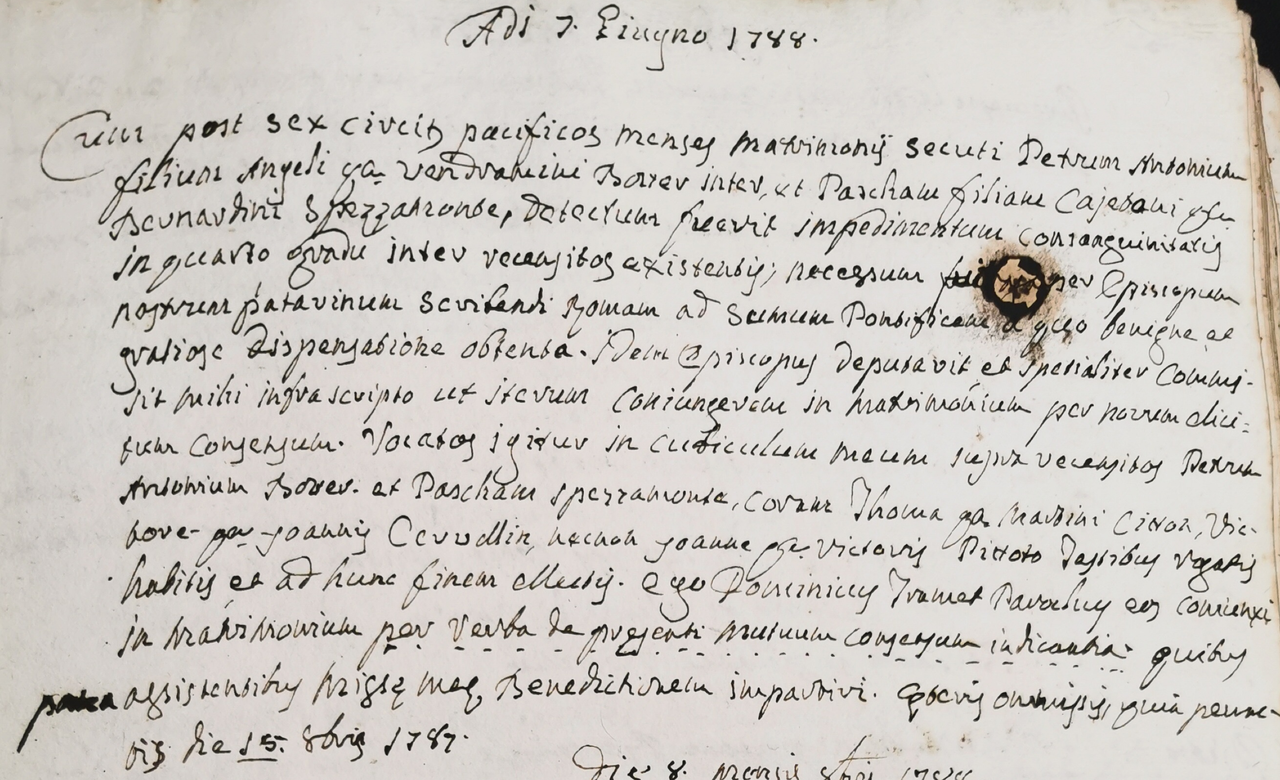 Adi 7. Giugno 1788.
Cum post sex circit; pacificos menses matrimonij secuti Petrum Antonium
filium Angeli qm. Vendramini Borrer inter, et Pascham filiam Cajetani
Bernardini Spezzamonte, detectum fuerit impedimentum consanguinitatis
in quarto gradu inter recensitos existentis; necessum fuit per Episcopum
nostrum patavinum scribendi Romam ad Sumum Pontificem a quo benigne et
gratiose dispensatione obtenta. Idem Episcopus deputavit et spetialiter commi-
sit mihi infrascripto ut iterum coniungerem in matrimonium per novum elici-
tum consensum. Vocatos igitur in cubiculum meum supra recensitos Petrum
Antonium Borrer. et Pascham Spezzamonte, coram Thoma qm. Martini Citton, Vic-
tore qm. Joannis Cervellin, necnon Joanne qm. Victoris Pittoto Testibus rogatis
habitis et ad hunc finem electis. Ego Dominicus Tramet Parochus eos coniunxi
in Matrimonium per verba de presenti mutuum consensum indicantia. quibus
postea assistentibus Missę meę Benedictionem impartivi. omissis, quia perac-
tis die 15. 8bris 1787.
Die 8. mensis 8bri